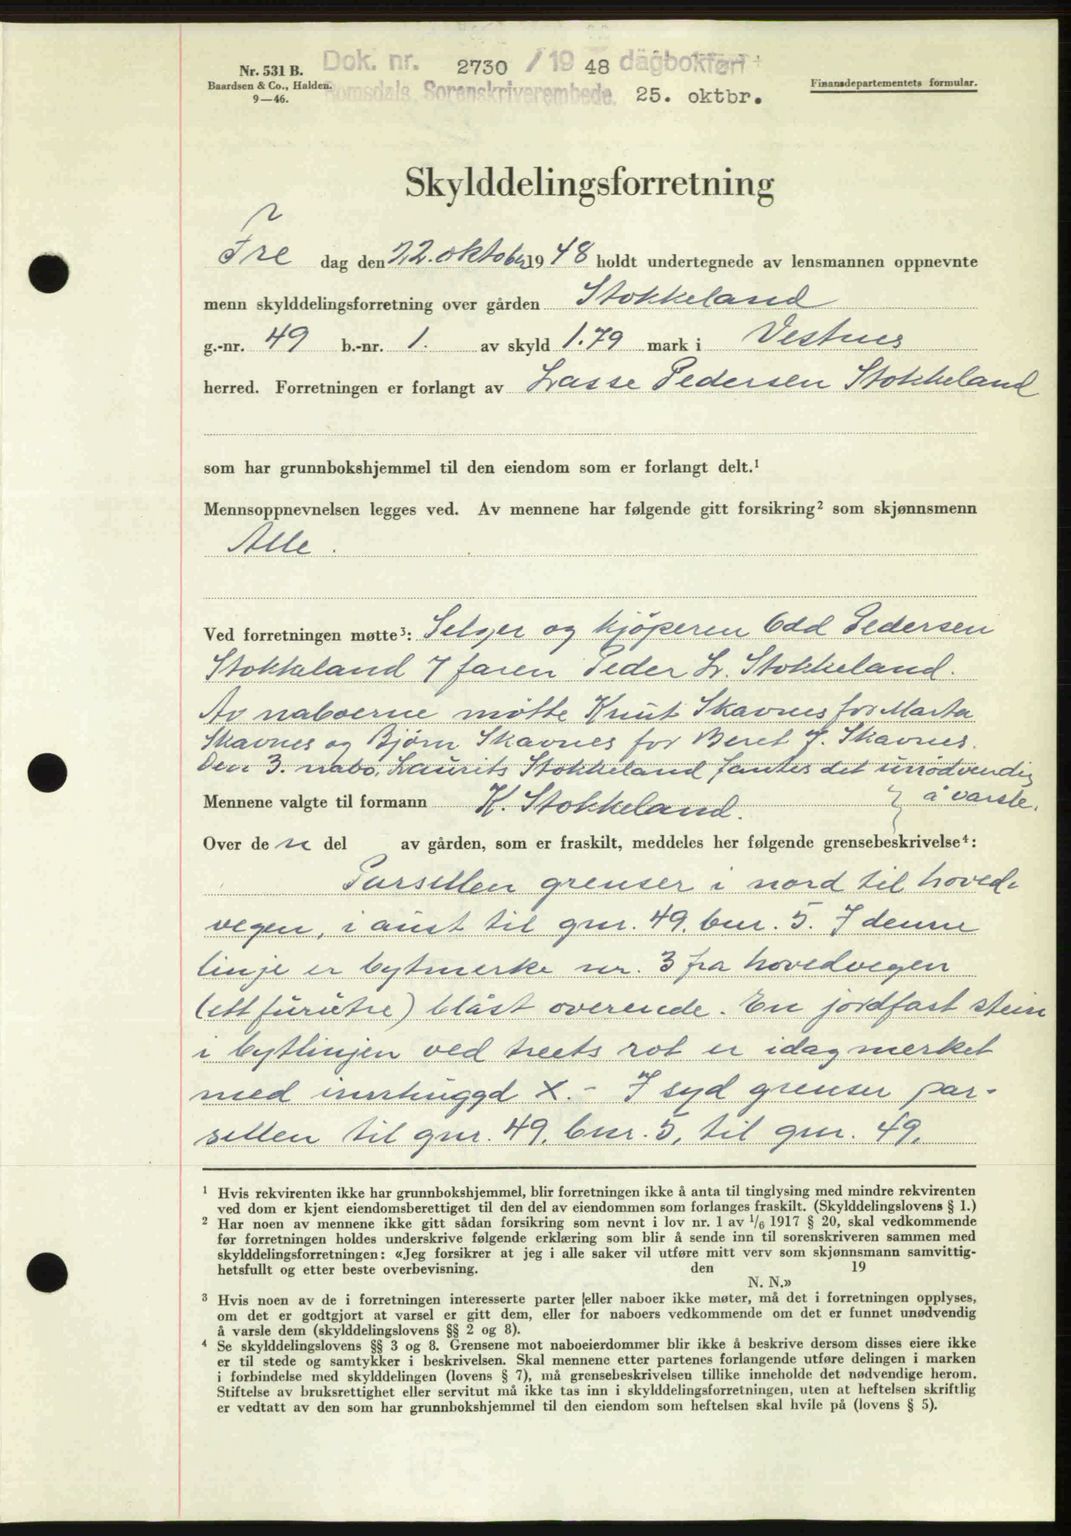 Nr. 531 B.
Baardsen & Co., Halden.
9—46.
Dok. nr. 2730 / 19 48 dagbokført
Romsdals Sorenskriverembede. 25. oktbr.
Finansdepartementets formular.
Skylddelingsforretning
Fre dag den 22. oktober 19 48 holdt undertegnede av lensmannen oppnevnte
menn skylddelingsforretning over gården Stokkeland
g.-nr. 49 b.-nr. 1. av skyld 1.79 mark i Vestnes
herred. Forretningen er forlangt av Lasse Pedersen Stokkeland
som har grunnbokshjemmel til den eiendom som er forlangt delt.¹
Mennsoppnevnelsen legges ved. Av mennene har følgende gitt forsikring² som skjønnsmenn
Alle.
Ved forretningen møtte³: Selger og kjøperen Odd Pedersen
Stokkeland / faren Peder L. Stokkeland.
Av naboerne møtte Knut Skavnes for Marta
Skavnes og Bjørn Skavnes for Beret J. Skavnes.
Den 3. nabo, Laurits Stokkeland fantes det unødvendig
å varsle.
Mennene valgte til formann K. Stokkeland.
Over den del av gården, som er fraskilt, meddeles her følgende grensebeskrivelse⁴:
Parsellen grenser i nord til hoved-
vegen, i aust til gnr. 49, bnr. 5. I denne
linje er bytmerke nr. 3 fra hovedvegen
(ett furutre) blåst overende. En jordfast stein
i bytlinjen ved treets rot er idag merket
med innhuggd X. - I syd grenser par-
sellen til gnr. 49, bnr. 5, til gnr. 49,
¹ Hvis rekvirenten ikke har grunnbokshjemmel, blir forretningen ikke å anta til tinglysing med mindre rekvirenten
ved dom er kjent eiendomsberettiget til den del av eiendommen som forlanges fraskilt. (Skylddelingslovens § 1.)
² Har noen av mennene ikke gitt sådan forsikring som nevnt i lov nr. 1 av ¹/₆ 1917 § 20, skal vedkommende
før forretningen holdes underskrive følgende erklæring som blir å sende inn til sorenskriveren sammen med
skylddelingsforretningen: «Jeg forsikrer at jeg i alle saker vil utføre mitt verv som skjønnsmann samvittig-
hetsfullt og etter beste overbevisning. den 19
N. N.»
³ Hvis noen av de i forretningen interesserte parter eller naboer ikke møter, må det i forretningen opplyses,
om det er godtgjort at varsel er gitt dem, eller for naboers vedkommende om det er funnet unødvendig
å varsle dem (skylddelingslovens §§ 2 og 8).
⁴ Se skylddelingslovens §§ 3 og 8. Grensene mot naboeierdommer blir ikke å beskrive dersom disses eiere ikke
er til stede og samtykker i beskrivelsen. Skal mennene etter partenes forlangende utføre delingen i marken
i forbindelse med skylddelingen (lovens § 7), må grensebeskrivelsen tillike inneholde det nødvendige herom.
Stiftelse av bruksrettighet eller servitut må ikke tas inn i skylddelingsforretningen, uten at heftelsen skriftlig
er vedtatt av den som har grunnbokshjemmel til den eiendom som heftelsen skal hvile på (lovens § 5).